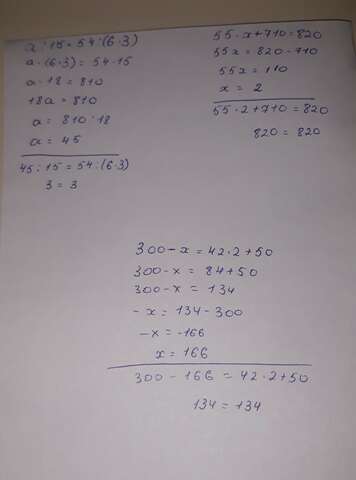 a : 15 = 54 : (6·3)
a · (6·3) = 54·15
a · 18 = 810
18a = 810
a = 810 : 18
a = 45
45 : 15 = 54 : (6·3)
3 = 3
55·x+710=820
55x = 820-710
55x = 110
x = 2
55·2+710=820
820 = 820
300-x = 42·2+50
300-x = 84+50
300-x = 134
-x = 134-300
-x = -166
x = 166
300 - 166 = 42·2+50
134 = 134